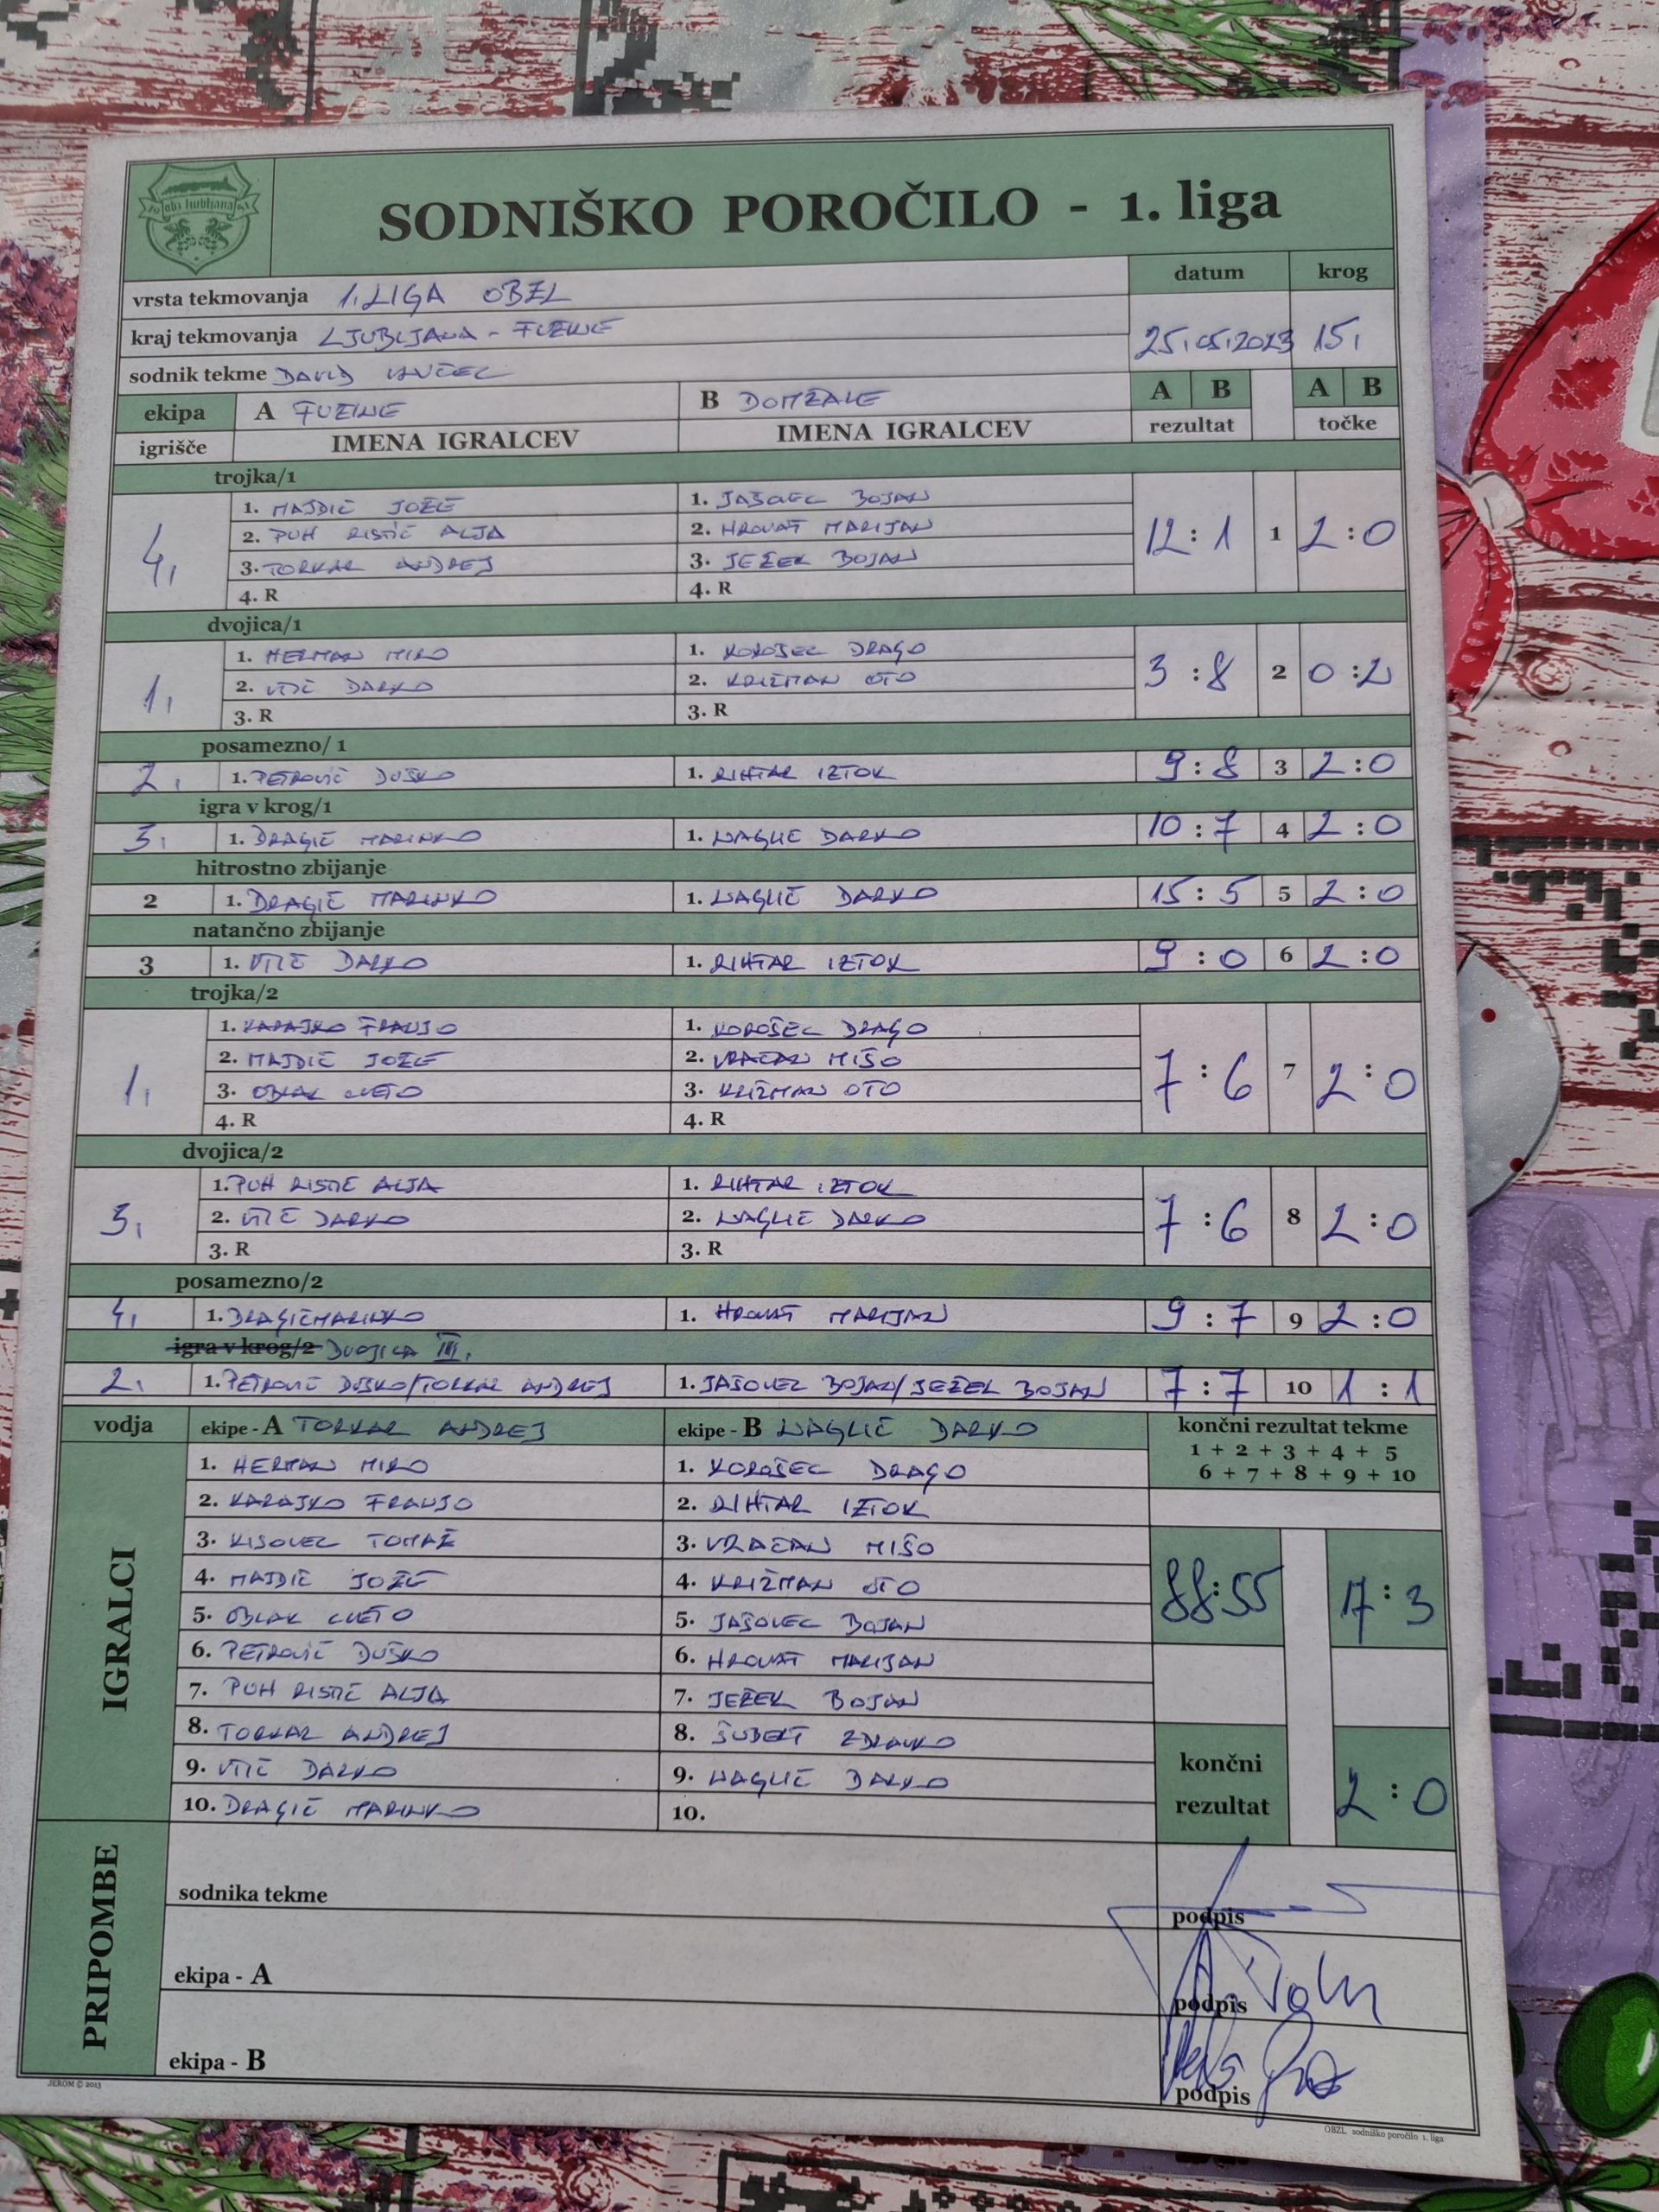 obz ljubljana
SODNIŠKO POROČILO - 1. liga
vrsta tekmovanja 1. LIGA OBZL
datum krog
kraj tekmovanja LJUBLJANA - FUŽINE
25.05.2023 15.
sodnik tekme DAVID
ekipa A FUŽINE B DOMŽALE A B A B
igrišče IMENA IGRALCEV IMENA IGRALCEV rezultat točke
trojka/1
4. 12 : 1 1 2 : 0
1. MAJDIČ JOŽE 1. JAŠOVEC BOJAN
2. PUH RISTIČ ALJA 2. HROVAT MARIJAN
3. TORKAR ANDREJ 3. JEŽEK BOJAN
4. R 4. R
dvojica/1
1. 3 : 8 2 0 : 2
1. HERMAN MIRO 1. KOROŠEC DRAGO
2. VITIČ DARKO 2. KRIŽMAN OTO
3. R 3. R
posamezno/ 1
2. 1. PETROVIČ DUŠKO 1. RIHTAR IZTOK 9 : 8 3 2 : 0
igra v krog/1
3. 1. DRAGIČ MARINKO 1. WAGLIČ DARKO 10 : 7 4 2 : 0
hitrostno zbijanje
2 1. DRAGIČ MARINKO 1. WAGLIČ DARKO 15 : 5 5 2 : 0
natančno zbijanje
3 1. VITIČ DARKO 1. RIHTAR IZTOK 9 : 0 6 2 : 0
trojka/2
1. 7 : 6 7 2 : 0
1. KARAJKO FRANJO 1. KOROŠEC DRAGO
2. MAJDIČ JOŽE 2. VRAČAN MIŠO
3. OBLAK CVETO 3. KRIŽMAN OTO
4. R 4. R
dvojica/2
3. 7 : 6 8 2 : 0
1. PUH RISTIČ ALJA 1. RIHTAR IZTOK
2. VITIČ DARKO 2. WAGLIČ DARKO
3. R 3. R
posamezno/2
4. 1. DRAGIČ MARINKO 1. HROVAT MARIJAN 9 : 7 9 2 : 0
igra v krog/2 DVOJICA III.
2. 1. PETROVIČ DUŠKO/TORKAR ANDREJ 1. JAŠOVEC BOJAN/JEŽEK BOJAN 7 : 7 10 1 : 1
vodja ekipe - A TORKAR ANDREJ ekipe - B WAGLIČ DARKO končni rezultat tekme
1 + 2 + 3 + 4 + 5
6 + 7 + 8 + 9 + 10
IGRALCI
1. HERMAN MIRO 1. KOROŠEC DRAGO
2. KARAJKO FRANJO 2. RIHTAR IZTOK
3. KISOVEC TOMAŽ 3. VRAČAN MIŠO
4. MAJDIČ JOŽE 4. KRIŽMAN OTO 88:55 17 : 3
5. OBLAK CVETO 5. JAŠOVEC BOJAN
6. PETROVIČ DUŠKO 6. HROVAT MARIJAN
7. PUH RISTIČ ALJA 7. JEŽEK BOJAN
8. TORKAR ANDREJ 8. ŠUBELT ZDRAVKO
9. VITIČ DARKO 9. WAGLIČ DARKO
10. DRAGIČ MARINKO 10.
končni rezultat 2 : 0
PRIPOMBE
sodnika tekme podpis
ekipa - A podpis
ekipa - B podpis
JEROM © 2013
OBZL sodniško poročilo 1. liga